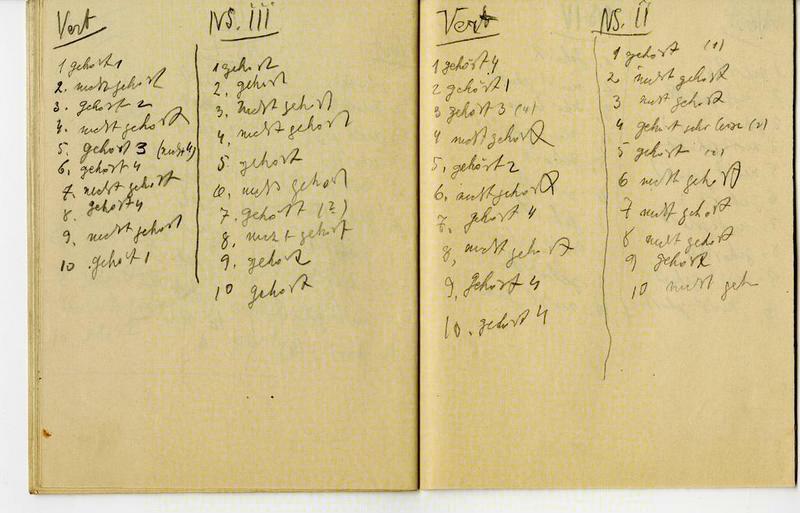 Vert
1 gehört 1
2. nicht gehört
3. gehört 2
4. nicht gehört
5. gehört 3 (nicht 4)
6. gehört 4
7. nicht gehört
8. gehört 4
9. nicht gehört
10. gehört 1
NS. III
1 gehört
2. gehört
3. nicht gehört
4. nicht gehört
5. gehört
6. nicht gehört
7. gehört (?)
8. nicht gehört
9. gehört
10 gehört
Vert
1 gehört 4
2 gehört 1
3 gehört 3 (4)
4 nicht gehört
5. gehört 2
6. nicht gehört
7. gehört 4
8. nicht gehört
9. gehört 4
10. gehört 4
NS. II
1 gehört (1)
2 nicht gehört
3 nicht gehört
4 gehört sehr leise (2)
5 gehört
6 nicht gehört
7 nicht gehört
8 nicht gehört
9 gehört
10 nicht geh